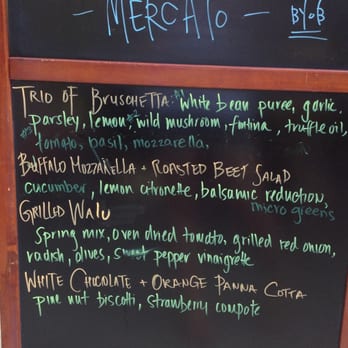 - MERCATO -
BYOB
TRIO OF BRUSCHETTA: #1 White bean puree, garlic.
parsley, lemon, #2 wild mushroom, fontina, truffle oil,
#3 tomato, basil, mozzarella,
BUFFALO MOZZARELLA + ROASTED BEET SALAD
cucumber, lemon citronette, balsamic reduction,
micro greens
GRILLED WALU
Spring mix, oven dried tomato, grilled red onion,
radish, olives, sweet pepper vinaigrette
WHITE CHOCOLATE + ORANGE PANNA COTTA
pine nut biscotti, strawberry compote